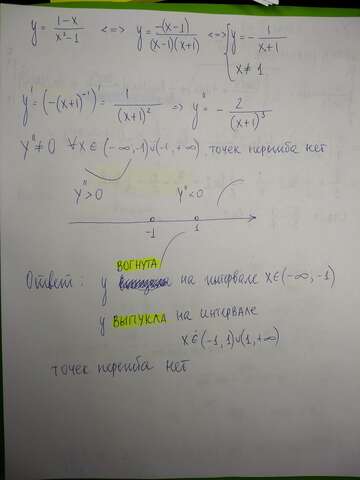 y = (1-x)/(x²-1) <=> y = (-(x-1))/((x-1)(x+1)) <=> { y = - 1/(x+1)
x ≠ 1
y' = (-(x+1)⁻¹)' = 1/(x+1)² => y'' = - 2/(x+1)³
y'' ≠ 0 ∀x ∈ (-∞,-1)∪(-1,+∞), точек перегиба нет
y'' > 0 y'' < 0
-1 1
ВОГНУТА
Ответ: y на интервале x ∈ (-∞, -1)
y ВЫПУКЛА на интервале
x ∈ (-1, 1)∪(1, +∞)
точек перегиба нет